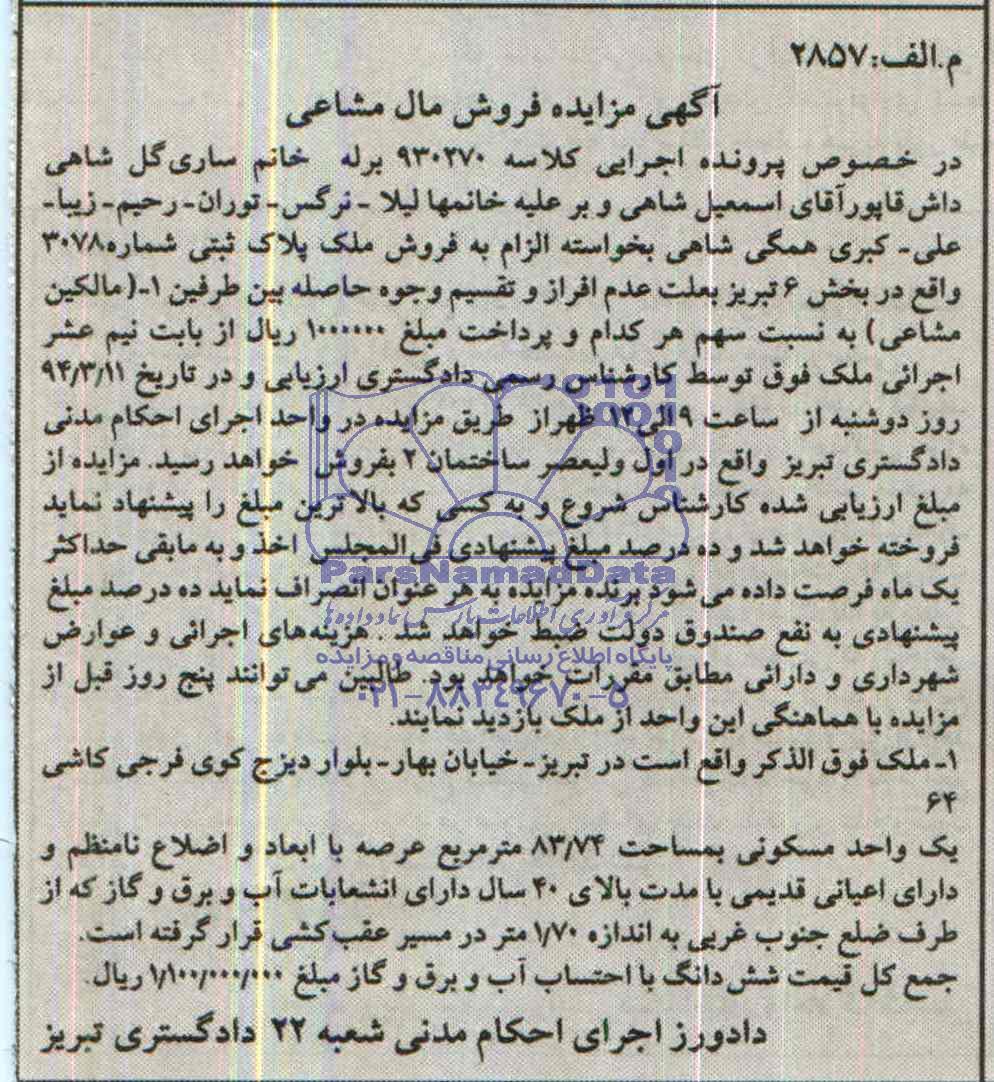 م.الف:۲۸۵۷
آگهی مزایده فروش مال مشاعی
در خصوص پرونده اجرایی کلاسه ۹۳۰۲۷۰ برله خانم ساری‌گل شاهی
داش قاپور آقای اسمعیل شاهی و بر علیه خانمها لیلا - نرگس- توران- رحیم- زیبا-
علی- کبری همگی شاهی بخواسته الزام به فروش ملک پلاک ثبتی شماره۳۰۷۸
واقع در بخش ۶ تبریز بعلت عدم افراز و تقسیم وجوه حاصله بین طرفین ۱-(مالکین
مشاعی) به نسبت سهم هر کدام و پرداخت مبلغ ۱۰۰۰۰۰۰ ریال از بابت نیم عشر
اجرائی ملک فوق توسط کارشناس رسمی دادگستری ارزیابی و در تاریخ ۹۴/۳/۱۱
روز دوشنبه از ساعت ۹ الی ۱۲ ظهراز طریق مزایده در واحد اجرای احکام مدنی
دادگستری تبریز واقع در اول ولیعصر ساختمان ۲ بفروش خواهد رسید. مزایده از
مبلغ ارزیابی شده کارشناس شروع و به کسی که بالاترین مبلغ را پیشنهاد نماید
فروخته خواهد شد و ده درصد مبلغ پیشنهادی فی‌المجلس اخذ و به مابقی حداکثر
یک ماه فرصت داده می شود برنده مزایده به هر عنوان انصراف نماید ده درصد مبلغ
پیشنهادی به نفع صندوق دولت ضبط خواهد شد . هزینه‌های اجرائی و عوارض
شهرداری و دارائی مطابق مقررات خواهد بود. طالبین می‌توانند پنج روز قبل از
مزایده با هماهنگی این واحد از ملک بازدید نمایند.
۱- ملک فوق الذکر واقع است در تبریز- خیابان بهار- بلوار دیزج کوی فرجی کاشی
۶۴
یک واحد مسکونی بمساحت ۸۳/۷۴ مترمربع عرصه با ابعاد و اضلاع نامنظم و
دارای اعیانی قدیمی با مدت بالای ۴۰ سال دارای انشعابات آب و برق و گاز که از
طرف ضلع جنوب غربی به اندازه ۱/۷۰ متر در مسیر عقب‌کشی قرار گرفته است.
جمع کل قیمت شش‌دانگ با احتساب آب و برق و گاز مبلغ ۱/۱۰۰/۰۰۰/۰۰۰ ریال.
دادورز اجرای احکام مدنی شعبه ۲۲ دادگستری تبریز
ParsNamadData
مرکز فرآوری اطلاعات پارس نماد داده‌ها
پایگاه اطلاع رسانی مناقصه و مزایده
۰۲۱-۸۸۳۴۹۶۷۰-۵